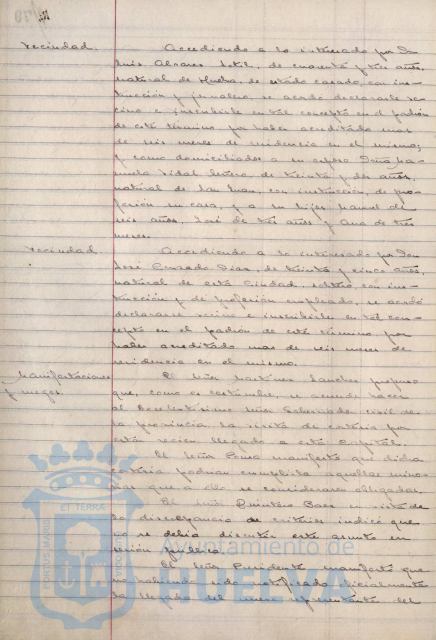 Vecindad. Accediendo a lo interesado por Don
Luis Alvarez de cuarenta y tres años,
natural de Huelva, de estado casado, con ins-
trucción y jornalero, se acordó declararle ve-
cino e inscribirle en tal concepto en el padrón
de este término por haber acreditado mas
de seis meses de residencia en el mismo;
y como domiciliados a su esposa Doña
Vidal de treinta y dos años,
natural de San Juan, con instrucción, de pro-
fesión su casa, y a su hijos Manuel de
seis años, José de tres años y Ana de tres
meses.
Vecindad. Accediendo a lo interesado por Don
José Diaz, de treinta y cinco años,
natural de esta Ciudad, soltero, con ins-
trucción y de profesión empleado, se acordó
declararse vecino e inscribirle en tal con-
cepto en el padrón de este término por
haber acreditado mas de seis meses de
residencia en el mismo.
Manifestaciones El Señor Martinez Sanchez propuso
y ruegos. que, como es costumbre, se acuerde hacer
al Excelentísimo Señor Gobernador civil de
la provincia la visita de cortesía por
estar recien llegado a esta Capital.
El Señor manifestó que dicha
cortesía podrían cumplirla aquellas mino-
rias que a ello se consideraran obligadas.
El Señor Quintero Baez en vista de
la discrepancia de criterios indicó que
no se debía discutir este asunto en
sesión pública.
El Señor Presidente manifestó que
no habiendo sido notificado oficialmente
la llegada del nuevo representante del
PORTUS MARIS
ET TERRAE
CUSTODIA
Ayuntamiento de
HUELVA